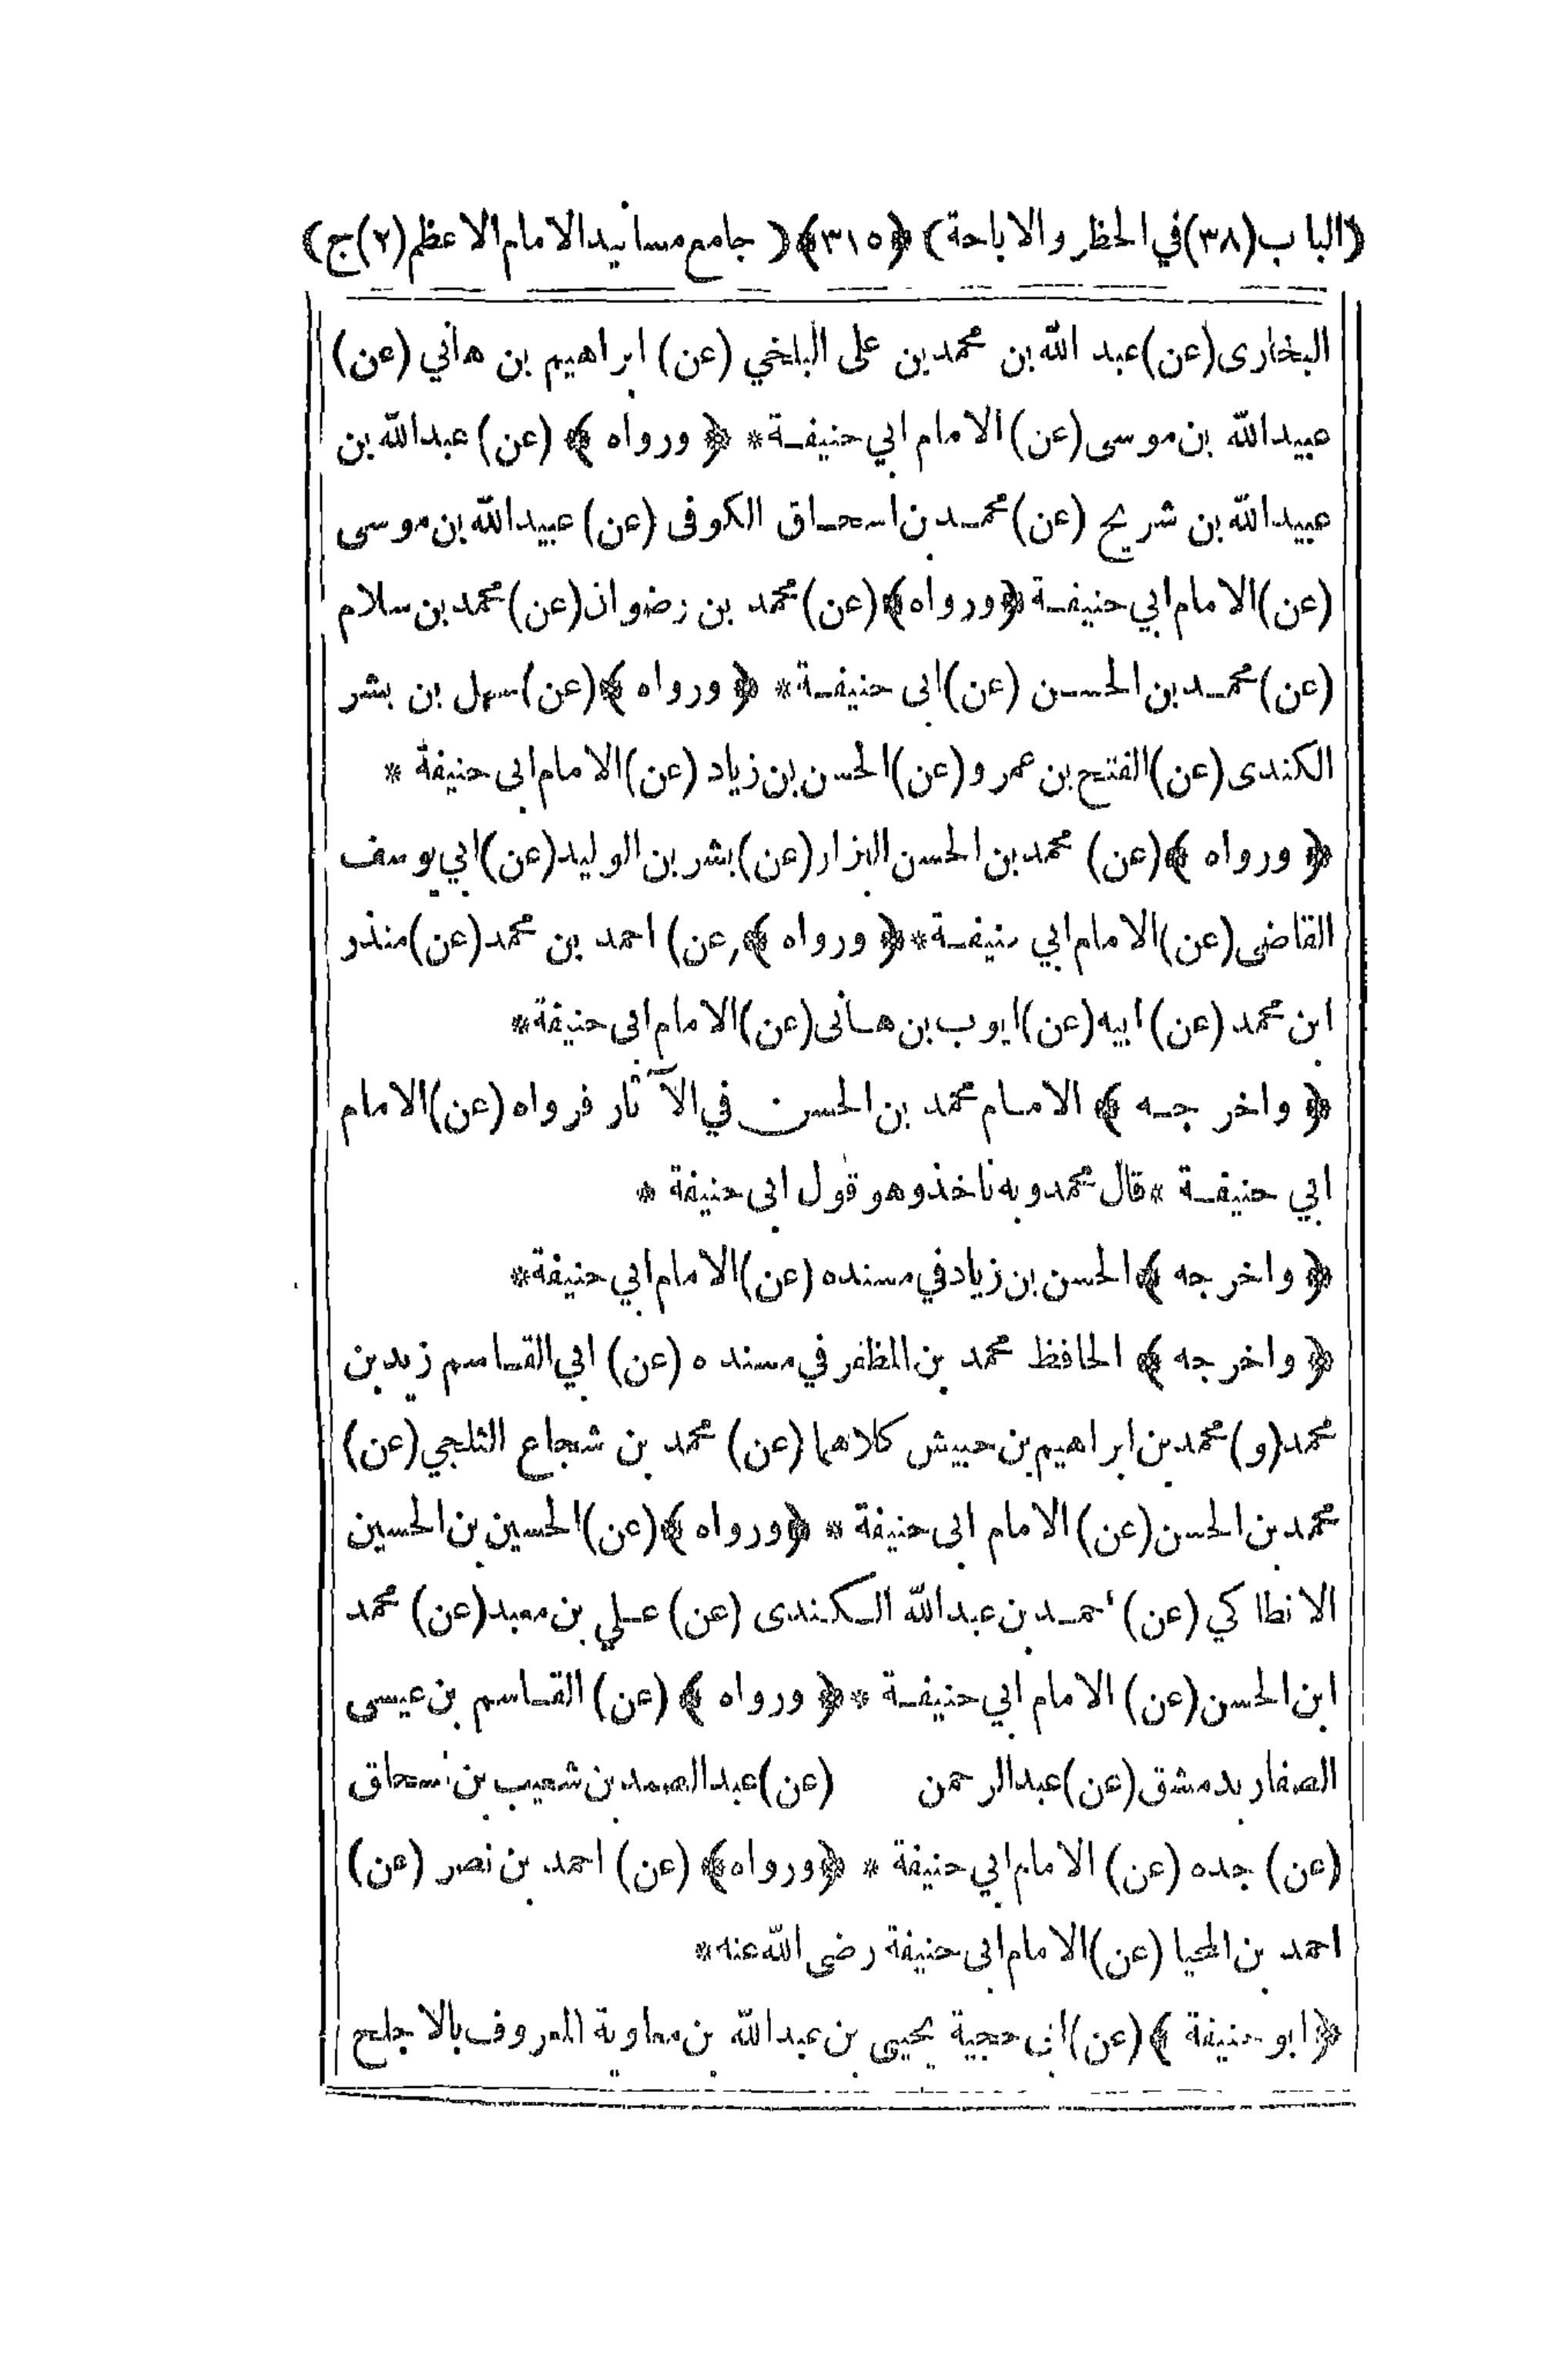 (الباب(٣٨)في الحظر والاباحة) ﴿٣١٥﴾ ( جامع مسانيد الامام الاعظم(٢)ج)
البخارى(عن)عبد الله بن محمد بن على البلخي (عن) ابراهيم بن هاني (عن)
عبيد الله بن موسى (عن) الامام ابي حنيفة* ﴿ ورواه ﴾ (عن) عبد الله بن
عبيد الله بن شريح (عن) محمد بن اسحاق الكوفى (عن) عبيد الله بن موسى
(عن) الامام ابي حنيفة ﴿ورواه﴾(عن) محمد بن رضوان(عن)محمد بن سلام
(عن) محمد بن الحسن (عن) ابى حنيفة* ﴿ ورواه ﴾(عن) سهل بن بشر
الكندى (عن) الفتح بن عمرو (عن) الحسن بن زياد (عن) الامام ابى حنيفة *
﴿ ورواه ﴾(عن) محمد بن الحسن البزار (عن) بشر بن الوليد (عن) ابي يوسف
القاضى (عن) الامام ابي حنيفة*﴿ ورواه ﴾(عن) احمد بن محمد (عن) منذر
ابن محمد (عن) ابيه (عن) ايوب بن هانى (عن) الامام ابى حنيفة*
﴿ واخرجه ﴾ الامام محمد بن الحسن في الآثار فرواه (عن) الامام
ابي حنيفة *قال محمد وبه ناخذ وهو قول ابى حنيفة *
﴿ واخرجه ﴾ الحسن بن زياد في مسنده (عن) الامام ابي حنيفة*
﴿ واخرجه ﴾ الحافظ محمد بن المظفر في مسنده (عن) ابي القاسم زيد بن
محمد (و) محمد بن ابراهيم بن حبيش كلاهما (عن) محمد بن شجاع الثلجي (عن)
محمد بن الحسن (عن) الامام ابى حنيفة * ﴿ورواه ﴾(عن) الحسين بن الحسين
الانطاكي (عن) احمد بن عبد الله الكندى (عن) علي بن معبد (عن) محمد
ابن الحسن (عن) الامام ابي حنيفة *﴿ ورواه ﴾ (عن) القاسم بن عيسى
الصفار بدمشق (عن) عبد الرحمن (عن) عبد الصمد بن شعيب بن اسحاق
(عن) جده (عن) الامام ابي حنيفة * ﴿ورواه﴾ (عن) احمد بن نصر (عن)
احمد بن المحيا (عن) الامام ابى حنيفة رضى الله عنه*
﴿ابو حنيفة ﴾(عن) ابى حجية يحيى بن عبد الله بن معاوية المعروف بالاجلح